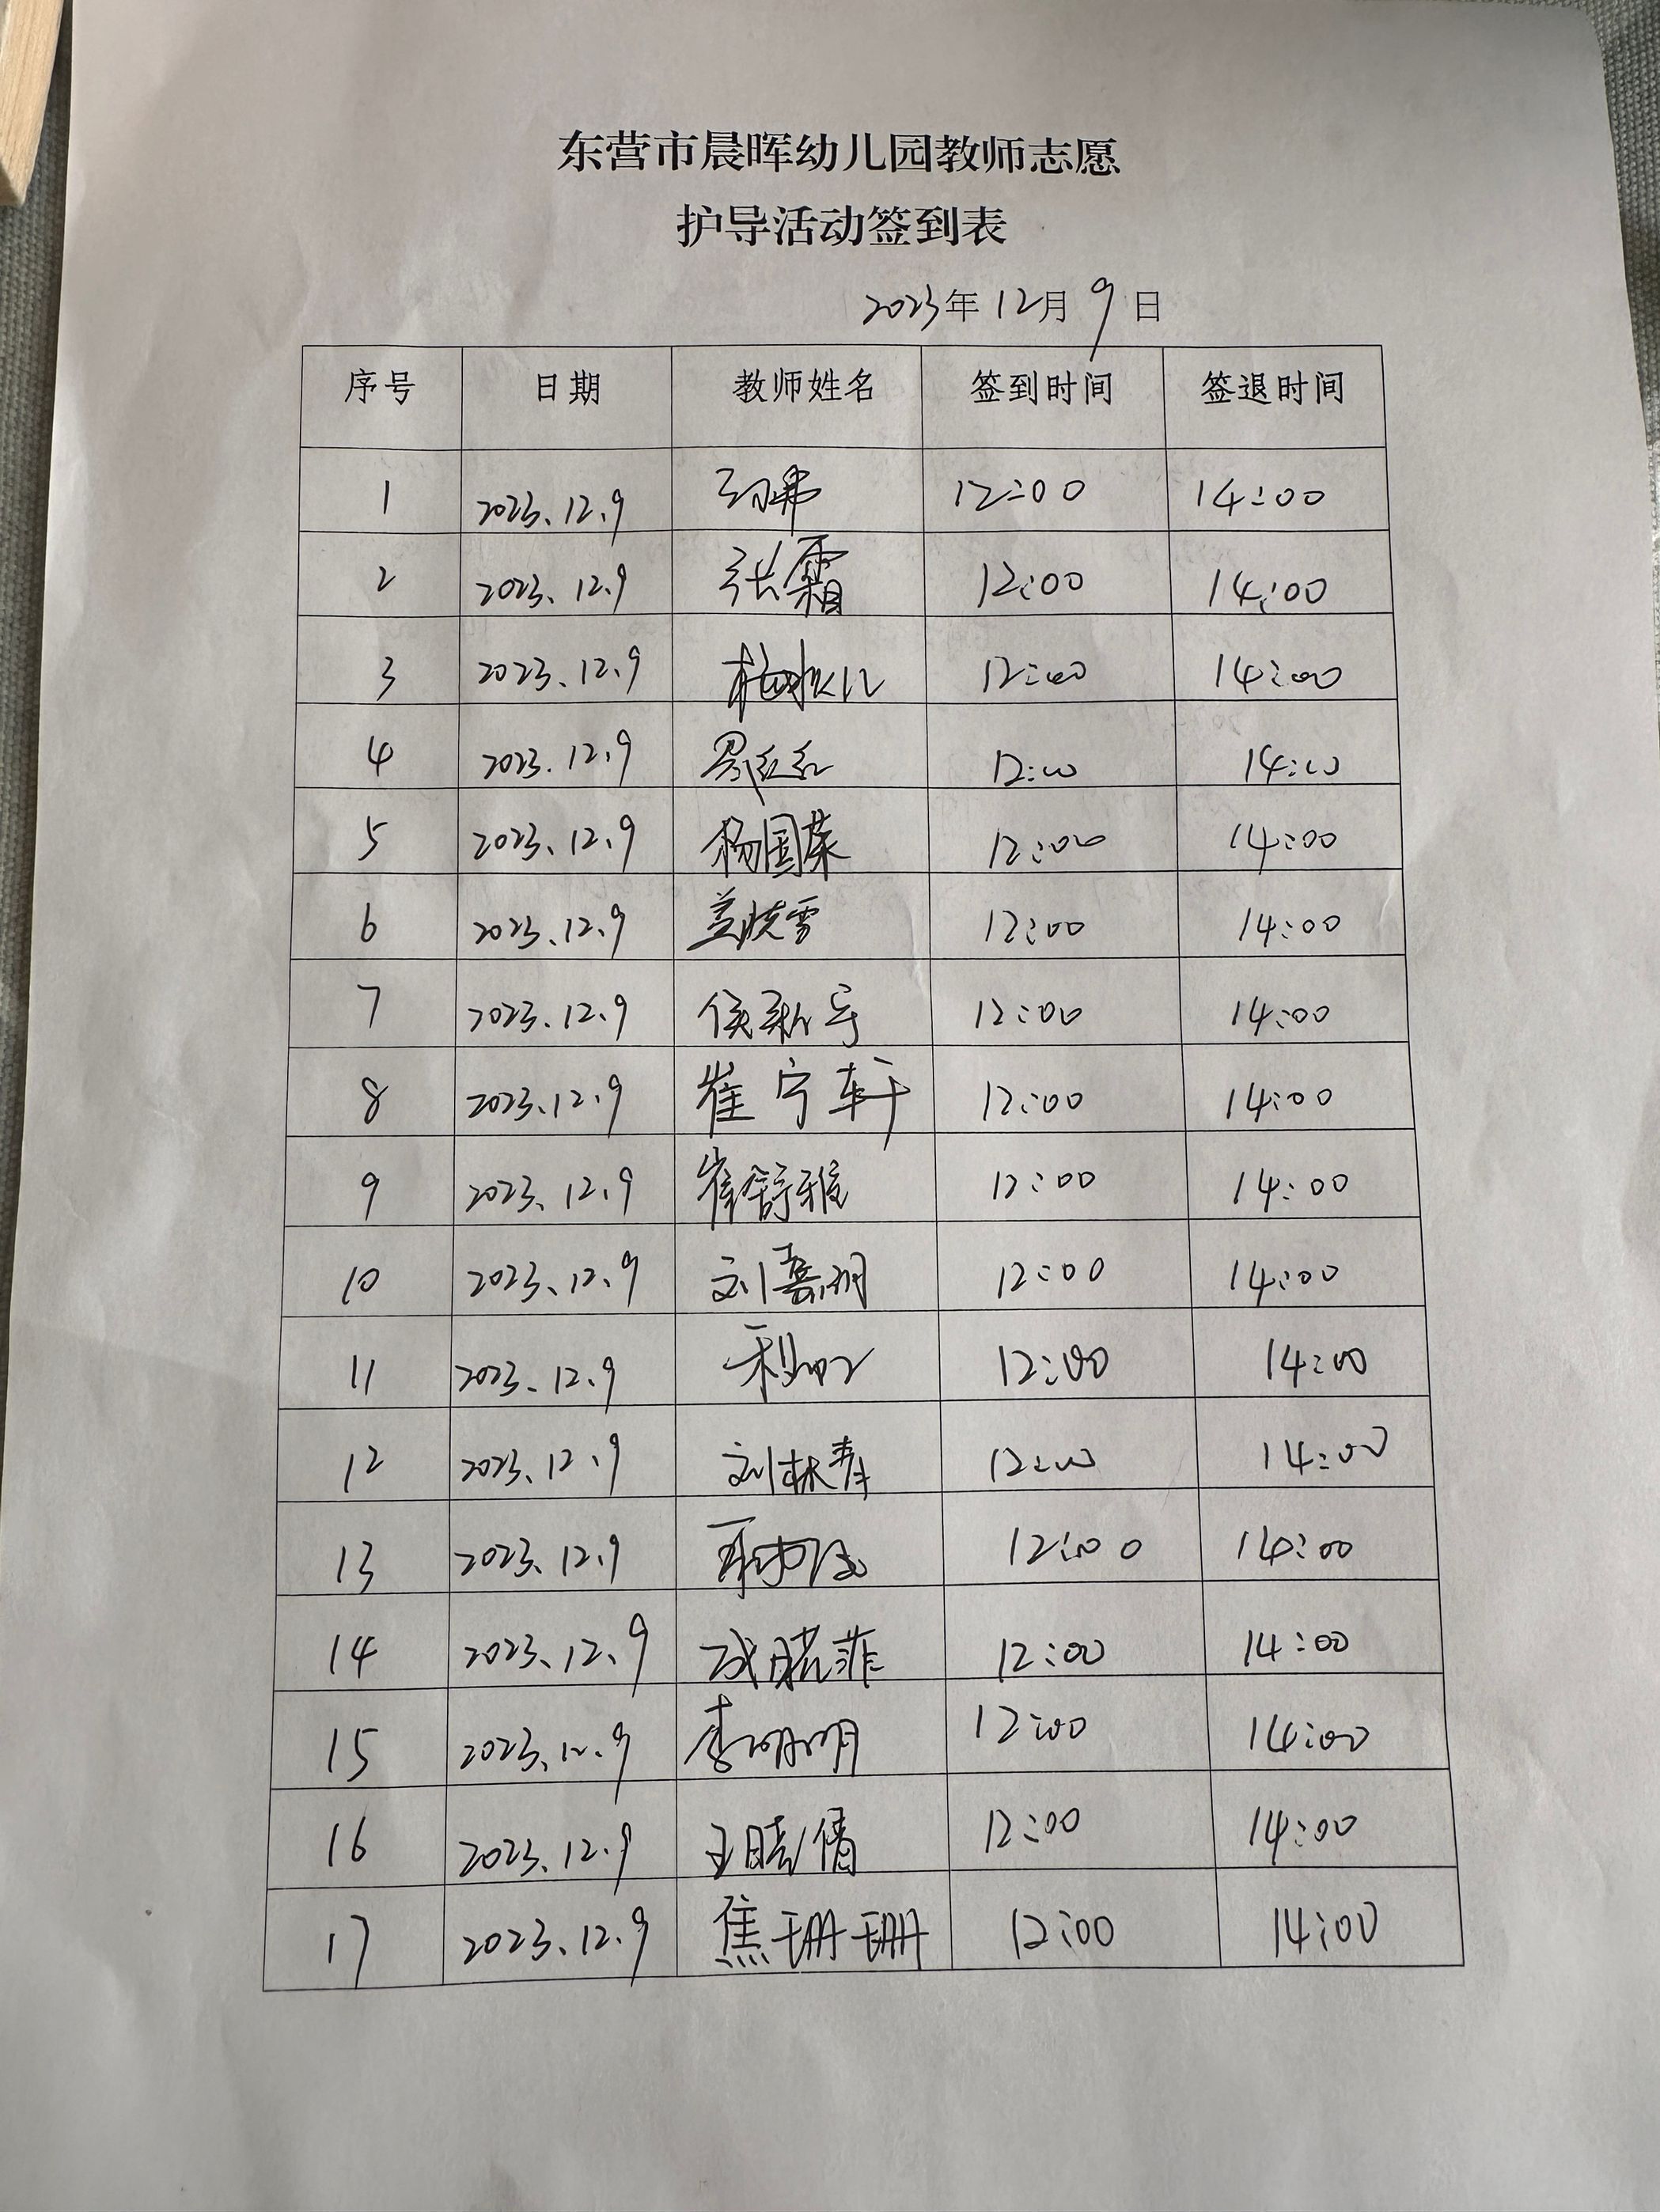 东营市晨晖幼儿园教师志愿
护导活动签到表
2023年12月9日
序号 日期 教师姓名 签到时间 签退时间
1 2023.12.9 12:00 14:00
2 2023.12.9 张霜 12:00 14:00
3 2023.12.9 12:00 14:00
4 2023.12.9 12:00 14:00
5 2023.12.9 杨国荣 12:00 14:00
6 2023.12.9 盖晓雪 12:00 14:00
7 2023.12.9 侯新宇 12:00 14:00
8 2023.12.9 崔宁轩 12:00 14:00
9 2023.12.9 崔舒雅 12:00 14:00
10 2023.12.9 12:00 14:00
11 2023.12.9 12:00 14:00
12 2023.12.9 刘林青 12:00 14:00
13 2023.12.9 12:00 14:00
14 2023.12.9 12:00 14:00
15 2023.12.9 李明明 12:00 14:00
16 2023.12.9 王晓倩 12:00 14:00
17 2023.12.9 焦珊珊 12:00 14:00